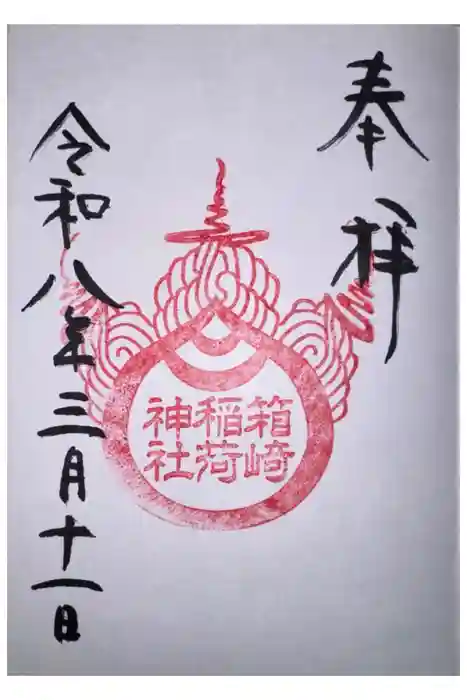 奉拝
箱崎
稲荷
神社
令和八年三月十一日